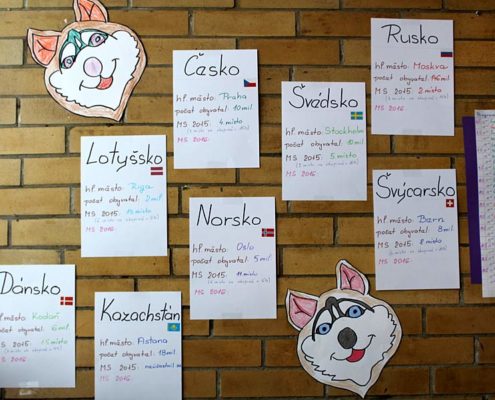 Rusko
hl. město: Moskva
počet obyvatel: 146 mil.
MS 2015: 2. místo
MS 2016:
Česko
hl. město: Praha
počet obyvatel: 10 mil.
MS 2015: 4. místo
MS 2016:
Švédsko
hl. město: Stockholm
počet obyvatel: 10 mil.
MS 2015: 5. místo
MS 2016:
Lotyšsko
hl. město: Riga
počet obyvatel: 2 mil.
MS 2015:
MS 2016:
Švýcarsko
hl. město: Bern
počet obyvatel: 8 mil.
MS 2015: 8 místo
MS 2016:
Norsko
hl. město: Oslo
počet obyvatel: 5 mil.
MS 2015: 11. místo
MS 2016:
Dánsko
hl. město: Kodaň
počet obyvatel: 6 mil.
MS 2015: místo
MS 2016:
Kazachstán
hl. město: Astana
počet obyvatel: 18 mil.
MS 2015:
MS 2016: